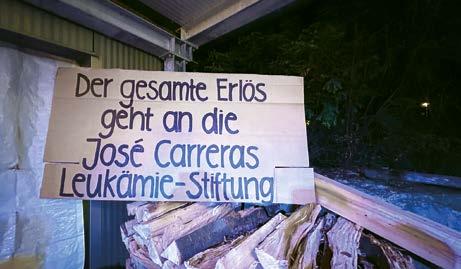 Der gesamte Erlös
geht an die
José Carreras
Leukämie-Stiftung